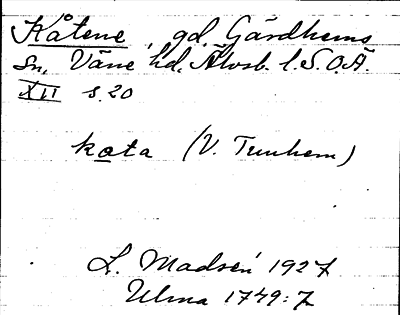 Kåtene, gd. Gärdhems
sn, Väne hd. Älvsb. l. S.O.Ä.
XII s. 20
kata (V. Tunhem)
L. Madsén 1927
Ulma 1749:7